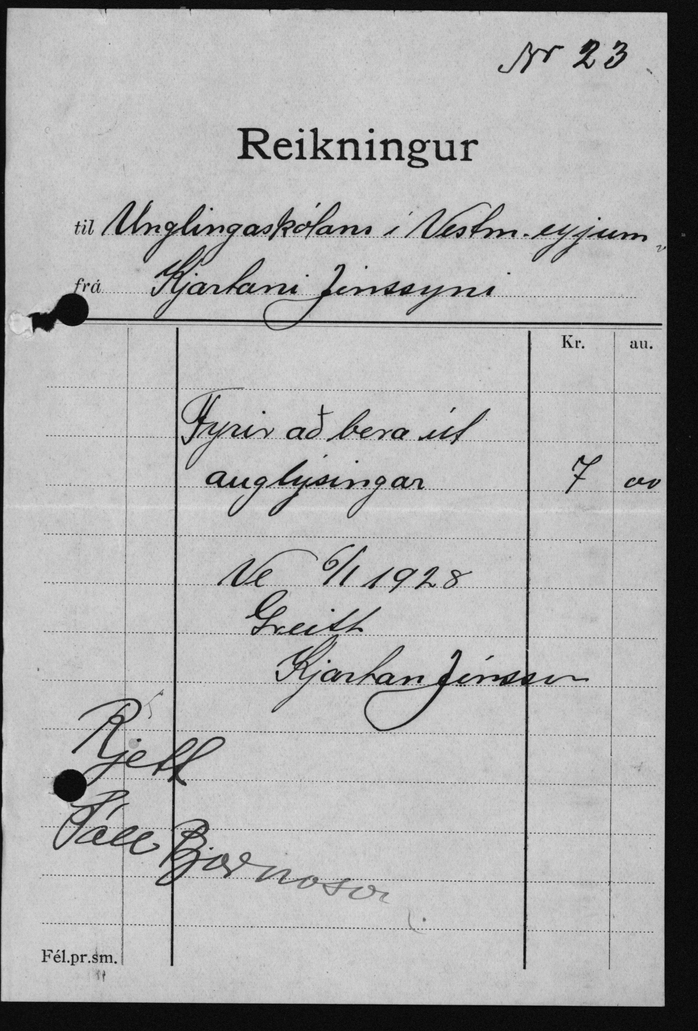 Nr 23
Reikningur
til Unglingaskólans í Vestm.eyjum
frá Kjartani Jónssyni
Kr. au.
Fyrir að bera út
auglýsingar 7 00
Ve 6/1 1928
Greitt
Kjartan Jónsson
Rjett
Páll Bjarnason
Fél.pr.sm.